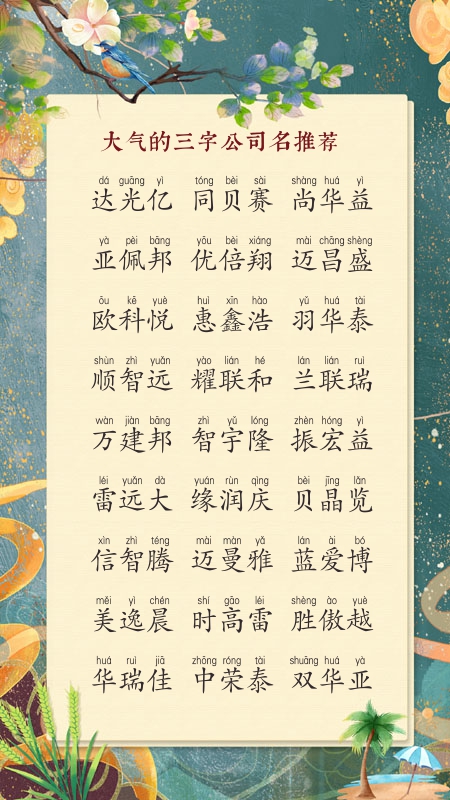 大气的三字公司名推荐
dá guāng yì tóng bèi sài shàng huá yì
达光亿 同贝赛 尚华益
yà pèi bāng yōu bèi xiáng mài chāng shèng
亚佩邦 优倍翔 迈昌盛
ōu kē yuè huì xīn hào yǔ huá tài
欧科悦 惠鑫浩 羽华泰
shùn zhì yuǎn yào lián hé lán lián ruì
顺智远 耀联和 兰联瑞
wàn jiàn bāng zhì yǔ lóng zhèn hóng yì
万建邦 智宇隆 振宏益
léi yuǎn dà yuán rùn qìng bèi jīng lǎn
雷远大 缘润庆 贝晶览
xìn zhì téng mài màn yǎ lán ài bó
信智腾 迈曼雅 蓝爱博
měi yì chén shí gāo léi shèng ào yuè
美逸晨 时高雷 胜傲越
huá ruì jiā zhōng róng tài shuāng huá yà
华瑞佳 中荣泰 双华亚